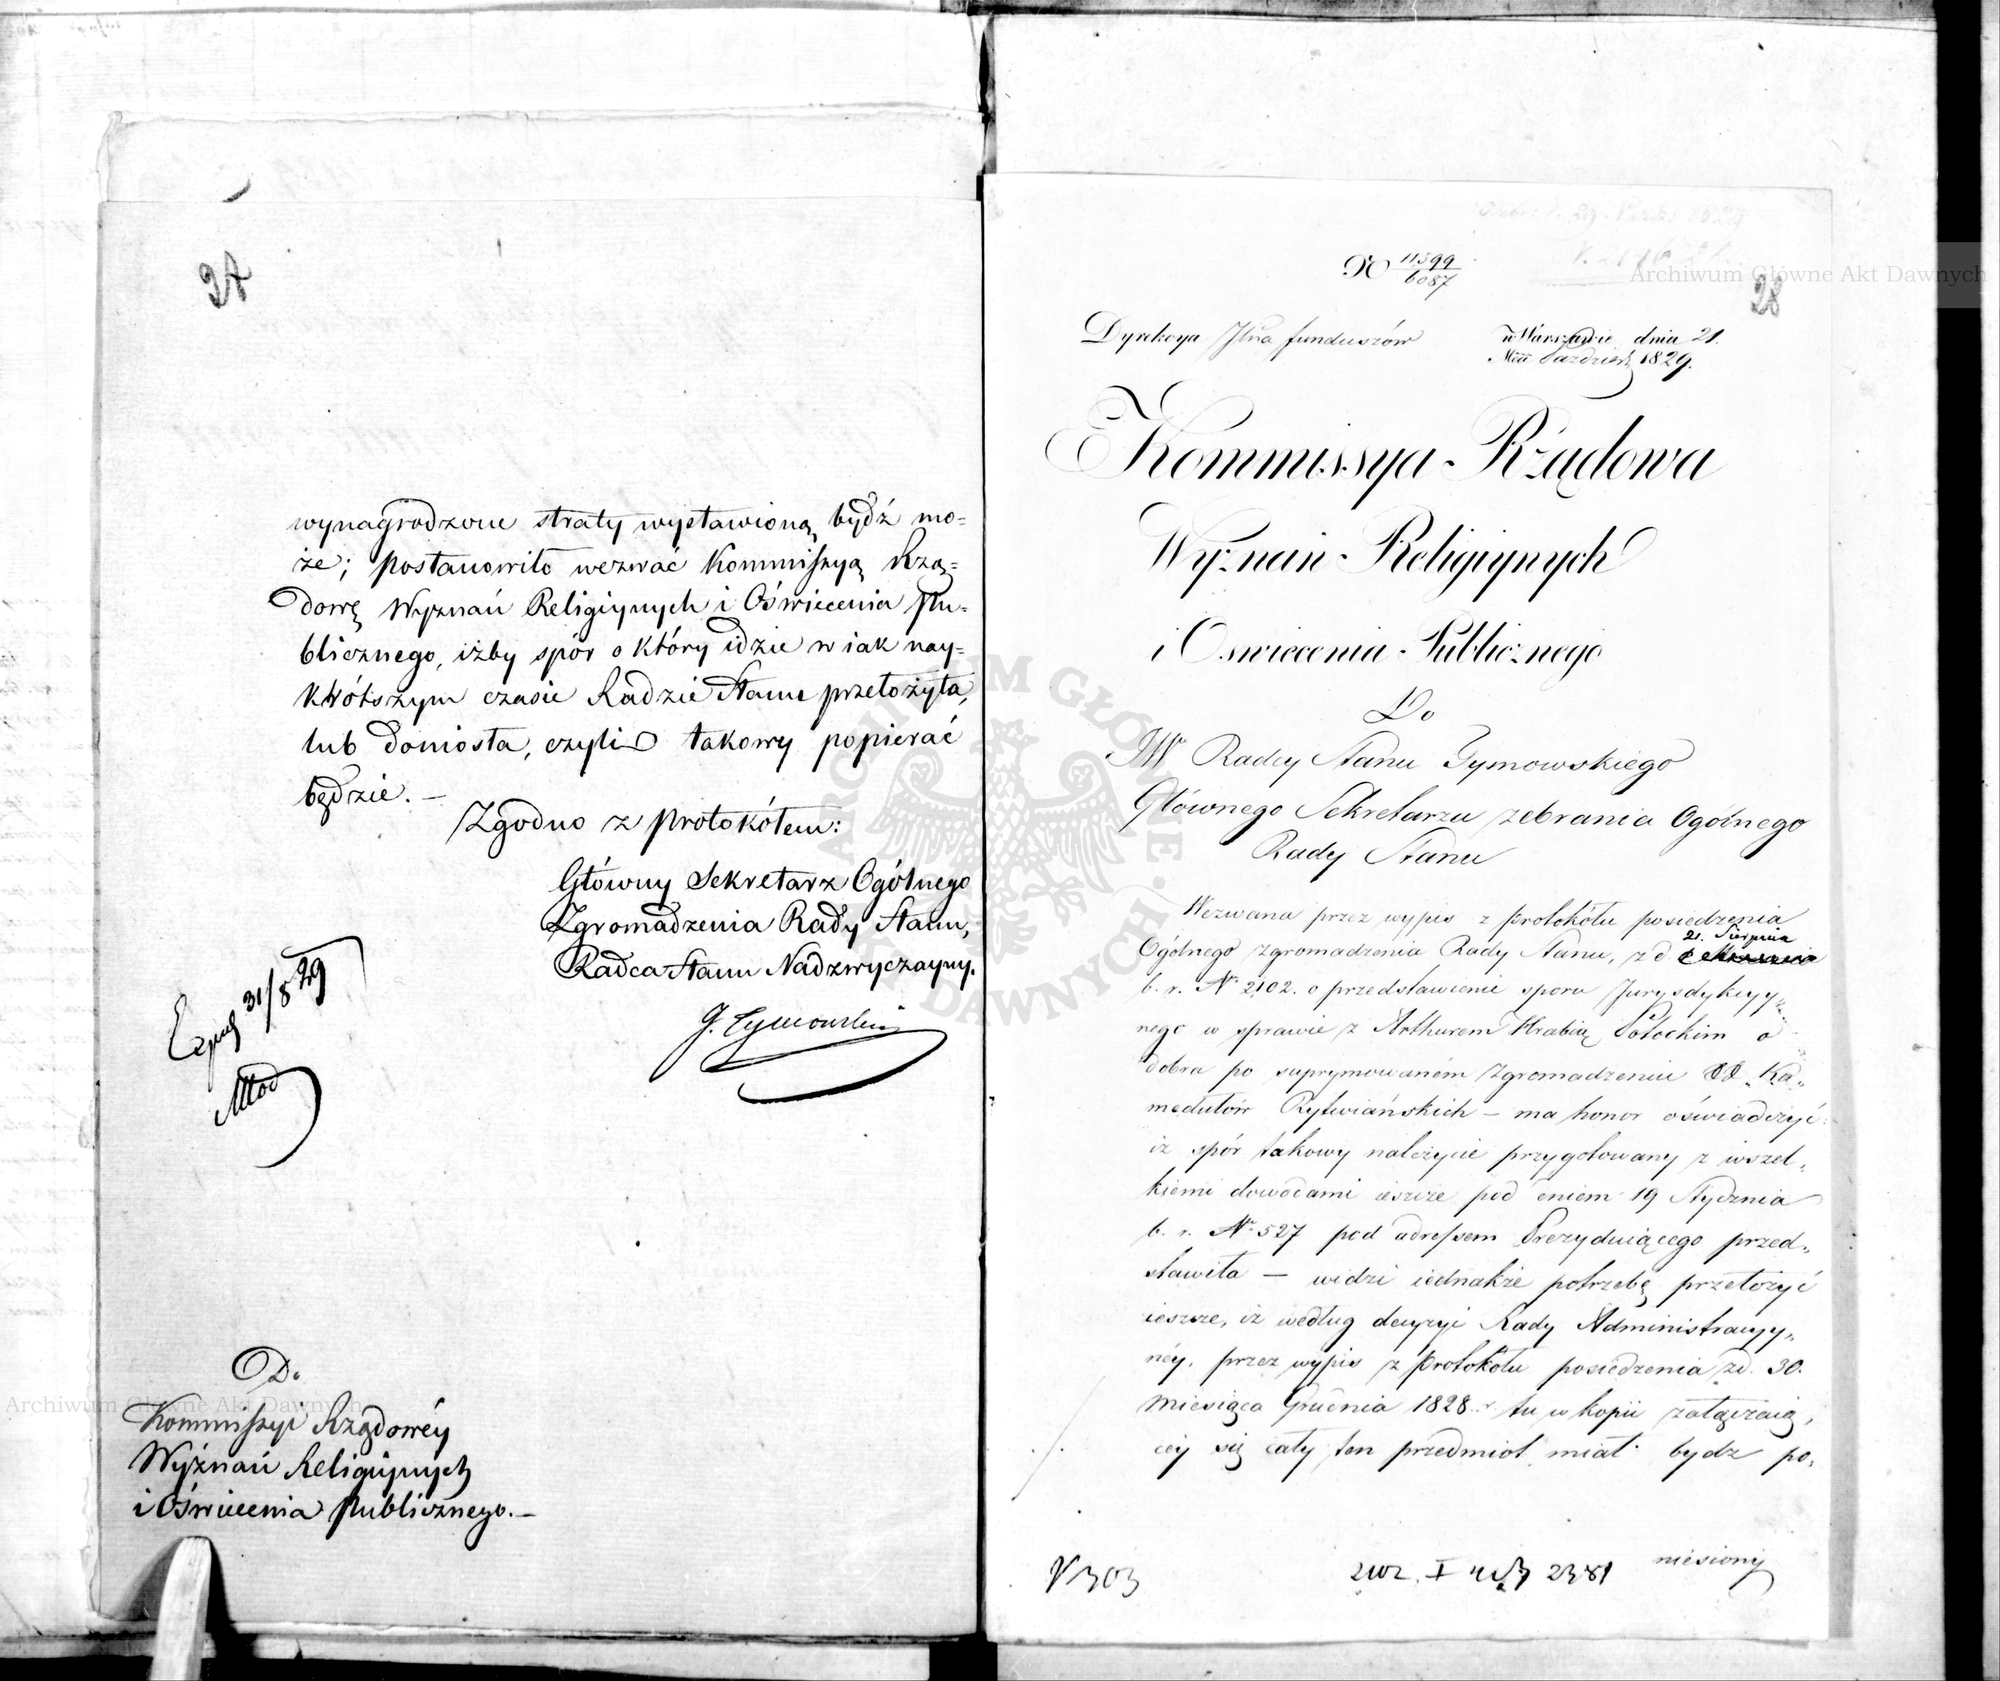 27
wynagrodzone straty wystawioną bydź mo=
że; postanowiło wezwać Kommissyą Rzą=
dową Wyznań Religiynych i Oświecenia Pu=
blicznego, iżby spór o który idzie w iak nay=
krótszym czasie Radzie Stanu przełożyła,
lub doniosła, czyli takowy popierać
będzie. —
Zgodno z Protokółem:
Główny Sekretarz Ogólnego
Zgromadzenia Rady Stanu,
Radca Stanu Nadzwyczayny.
J. Tymowski
31/8 29
Do
Kommissyi Rządowéy
Wyznań Religiynych
i Oświecenia Publicznego. —
28
No 11599
6087
Dyrekcya Jlna funduszów
w Warszawie dnia 21.
Mca Paździer. 1829.
Kommissya Rządowa
Wyznań Religiynych
i Oswiecenia Publicznego
Do
JW Radcy Stanu Tymowskiego
Głównego Sekretarza zebrania Ogólnego
Rady Stanu
Wezwana przez wypis z protokółu posiedzenia
21. Sierpnia
Ogólnego zgromadzenia Rady Stanu, z d
b. r. No 2102. o przedstawienie sporu Jurysdykcyy„
nego w sprawie z Arthurem Hrabią Potockim o
dobra po suprymowaném Zgromadzeniu XX. Ka„
medułów Rytwiańskich — ma honor oświadczyć:
iż spór takowy należycie przygotowany z wszel„
kiemi dowodami ieszcze pod dniem 19 Stycznia
b. r. No 527 pod adressem Prezyduiącego przed„
stawiła — widzi iednakże potrzebę przełożyć
ieszcze, iż według decyzyi Rady Administracyy„
néy, przez wypis z Protokółu posiedzenia z d. 30.
Miesiąca Grudnia 1828 r. tu w kopii załączaią„
céy się cały ten przedmiot miał bydz po„
niesiony
V 303
2102. I 2381
Archiwum Główne Akt Dawnych
Archiwum Główne Akt Dawnych
ARCHIWUM GŁÓWNE AKT DAWNYCH